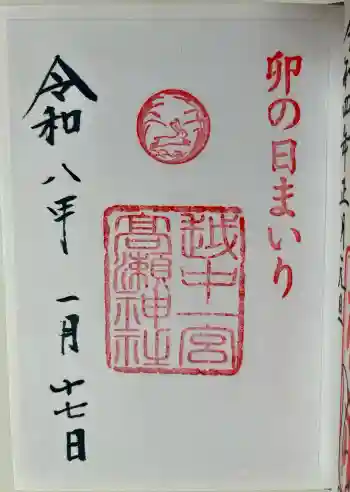 卯の日まいり
越中一宮
高瀬神社
令和八年一月十七日